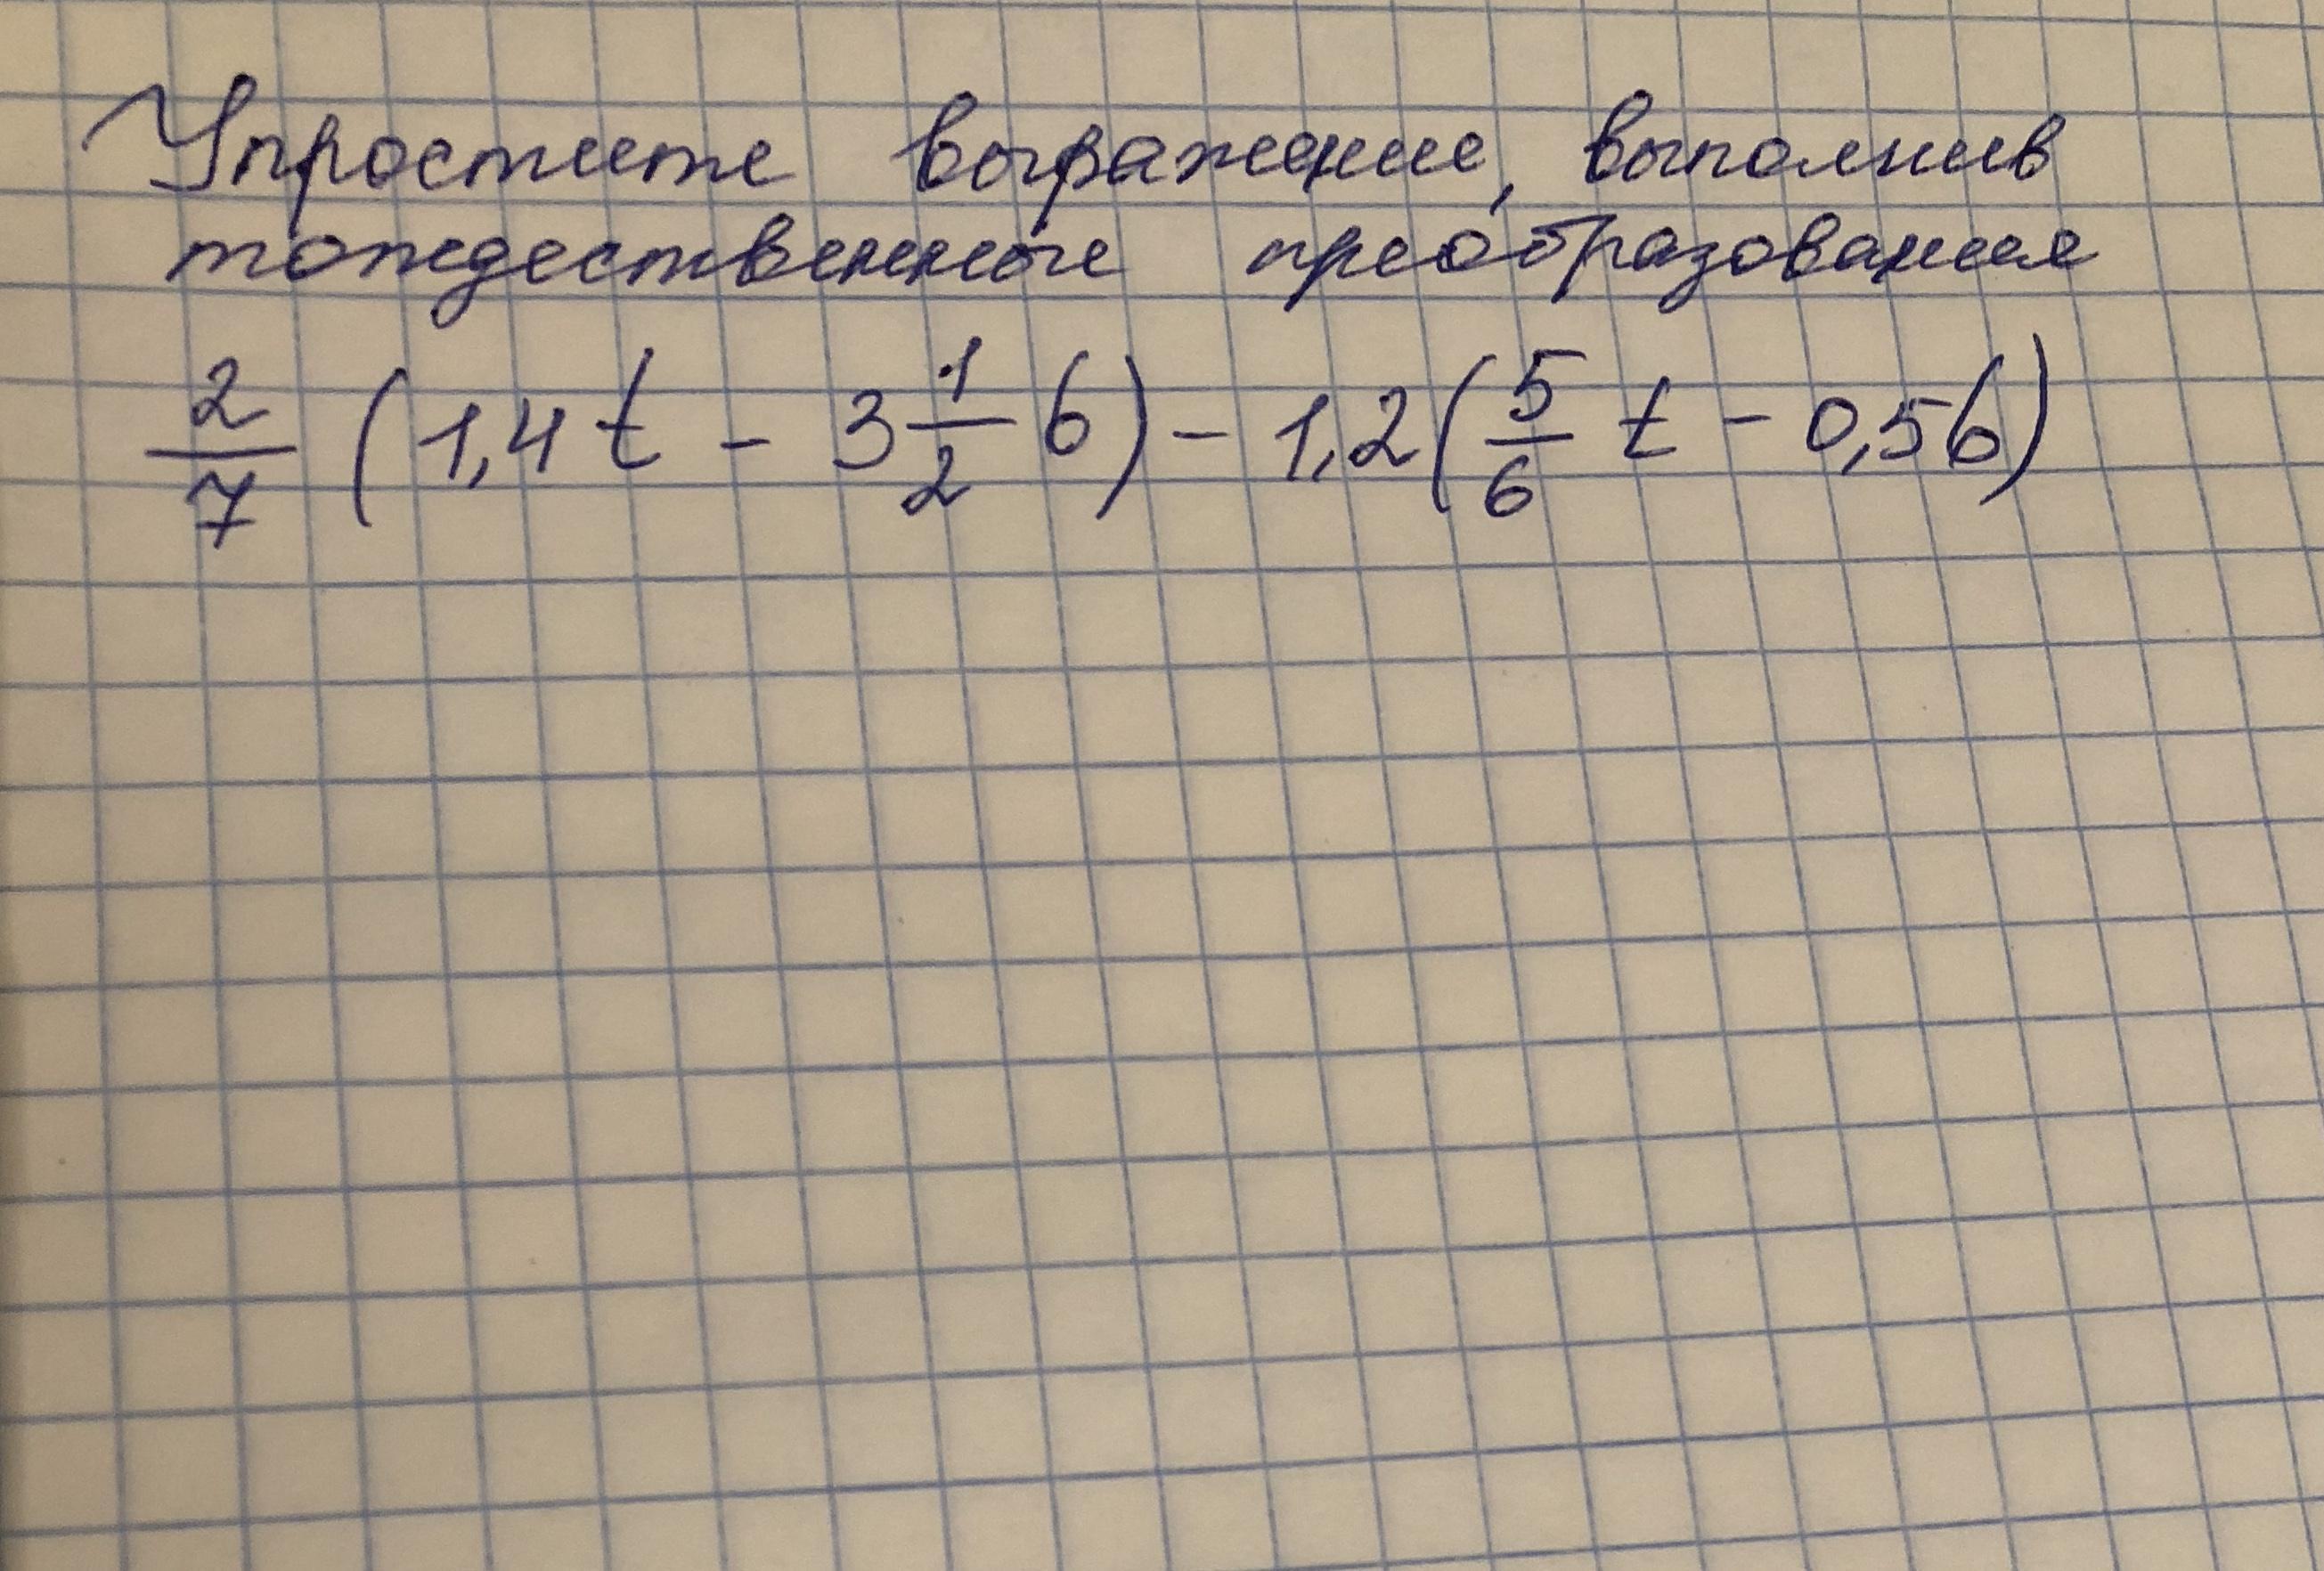 Упростите выражение, выполнив
тождественные преобразования
2/7 (1,4t - 3 1/2 b) - 1,2(5/6 t - 0,5b)